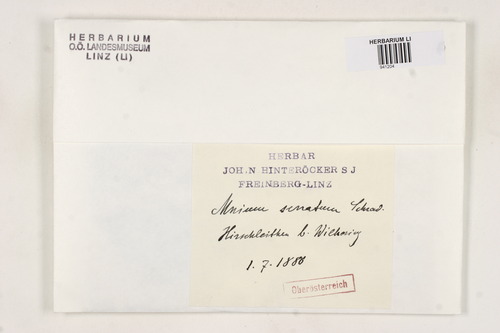 HERBARIUM
O.Ö. LANDESMUSEUM
LINZ (LI)
HERBARIUM LI
541204
HERBAR
JOH.N HINTERÖCKER S J
FREINBERG-LINZ
Mnium serratum Schrad.
Hirschleithen b. Wilhering
1.7.1880
Oberösterreich